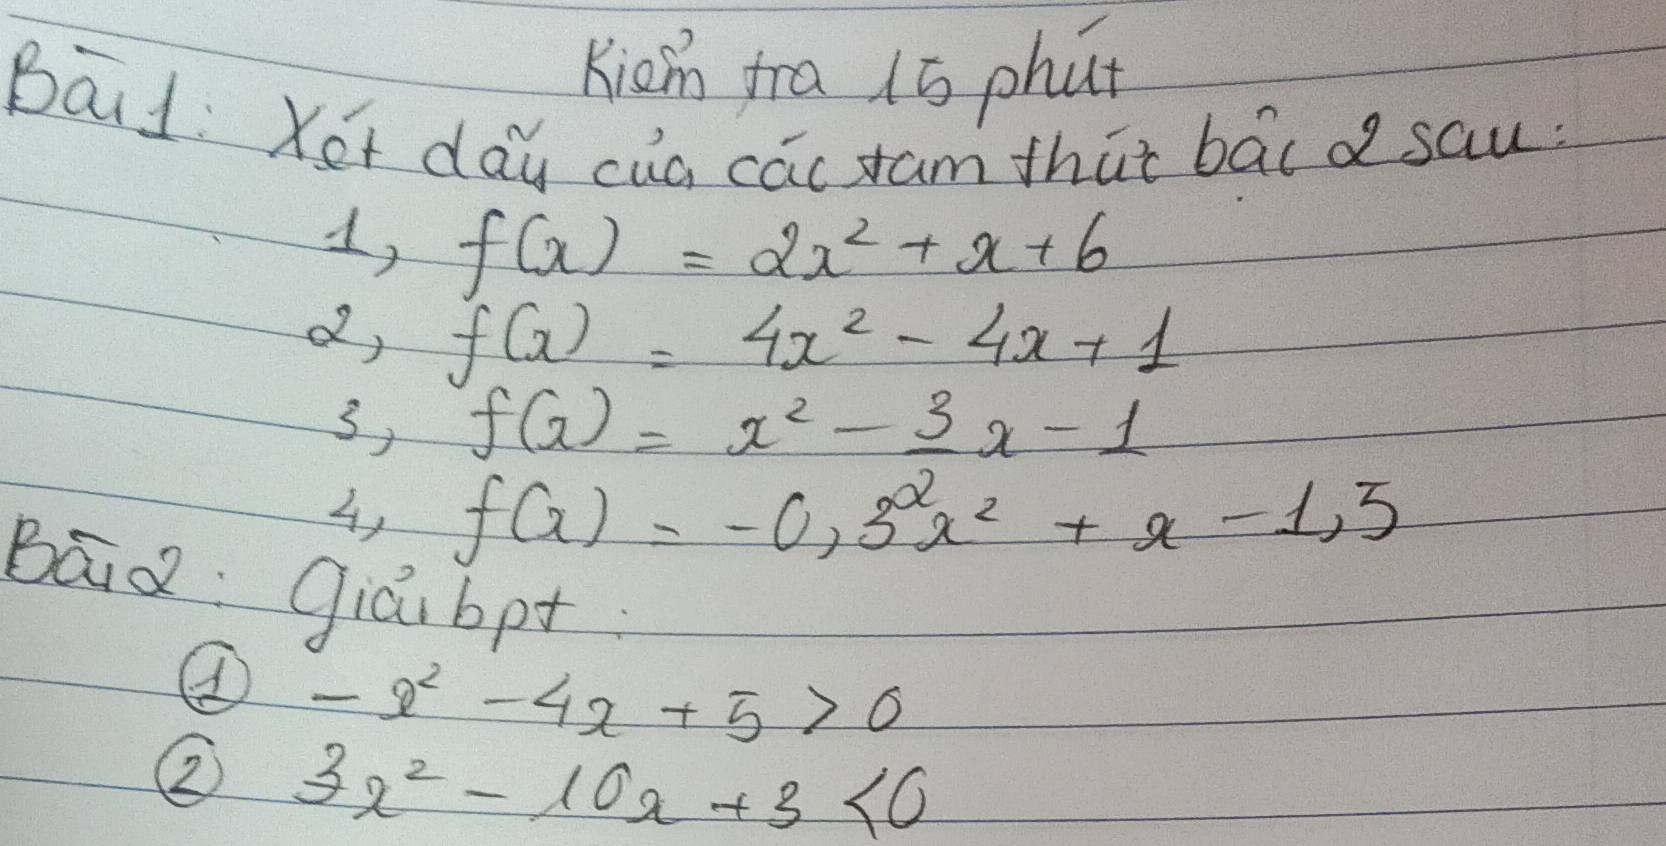 Kiểm tra 15 phút
Bài 1: Xét dấu của các tam thức bậc 2 sau:
1, f(x) = 2x² + x + 6
2, f(x) = 4x² - 4x + 1
3, f(x) = x² - 3/2 x - 1
4, f(x) = -0,3x² + x - 1,5
Bài 2: Giải bpt:
① -x² - 4x + 5 > 0
② 3x² - 10x + 3 < 0